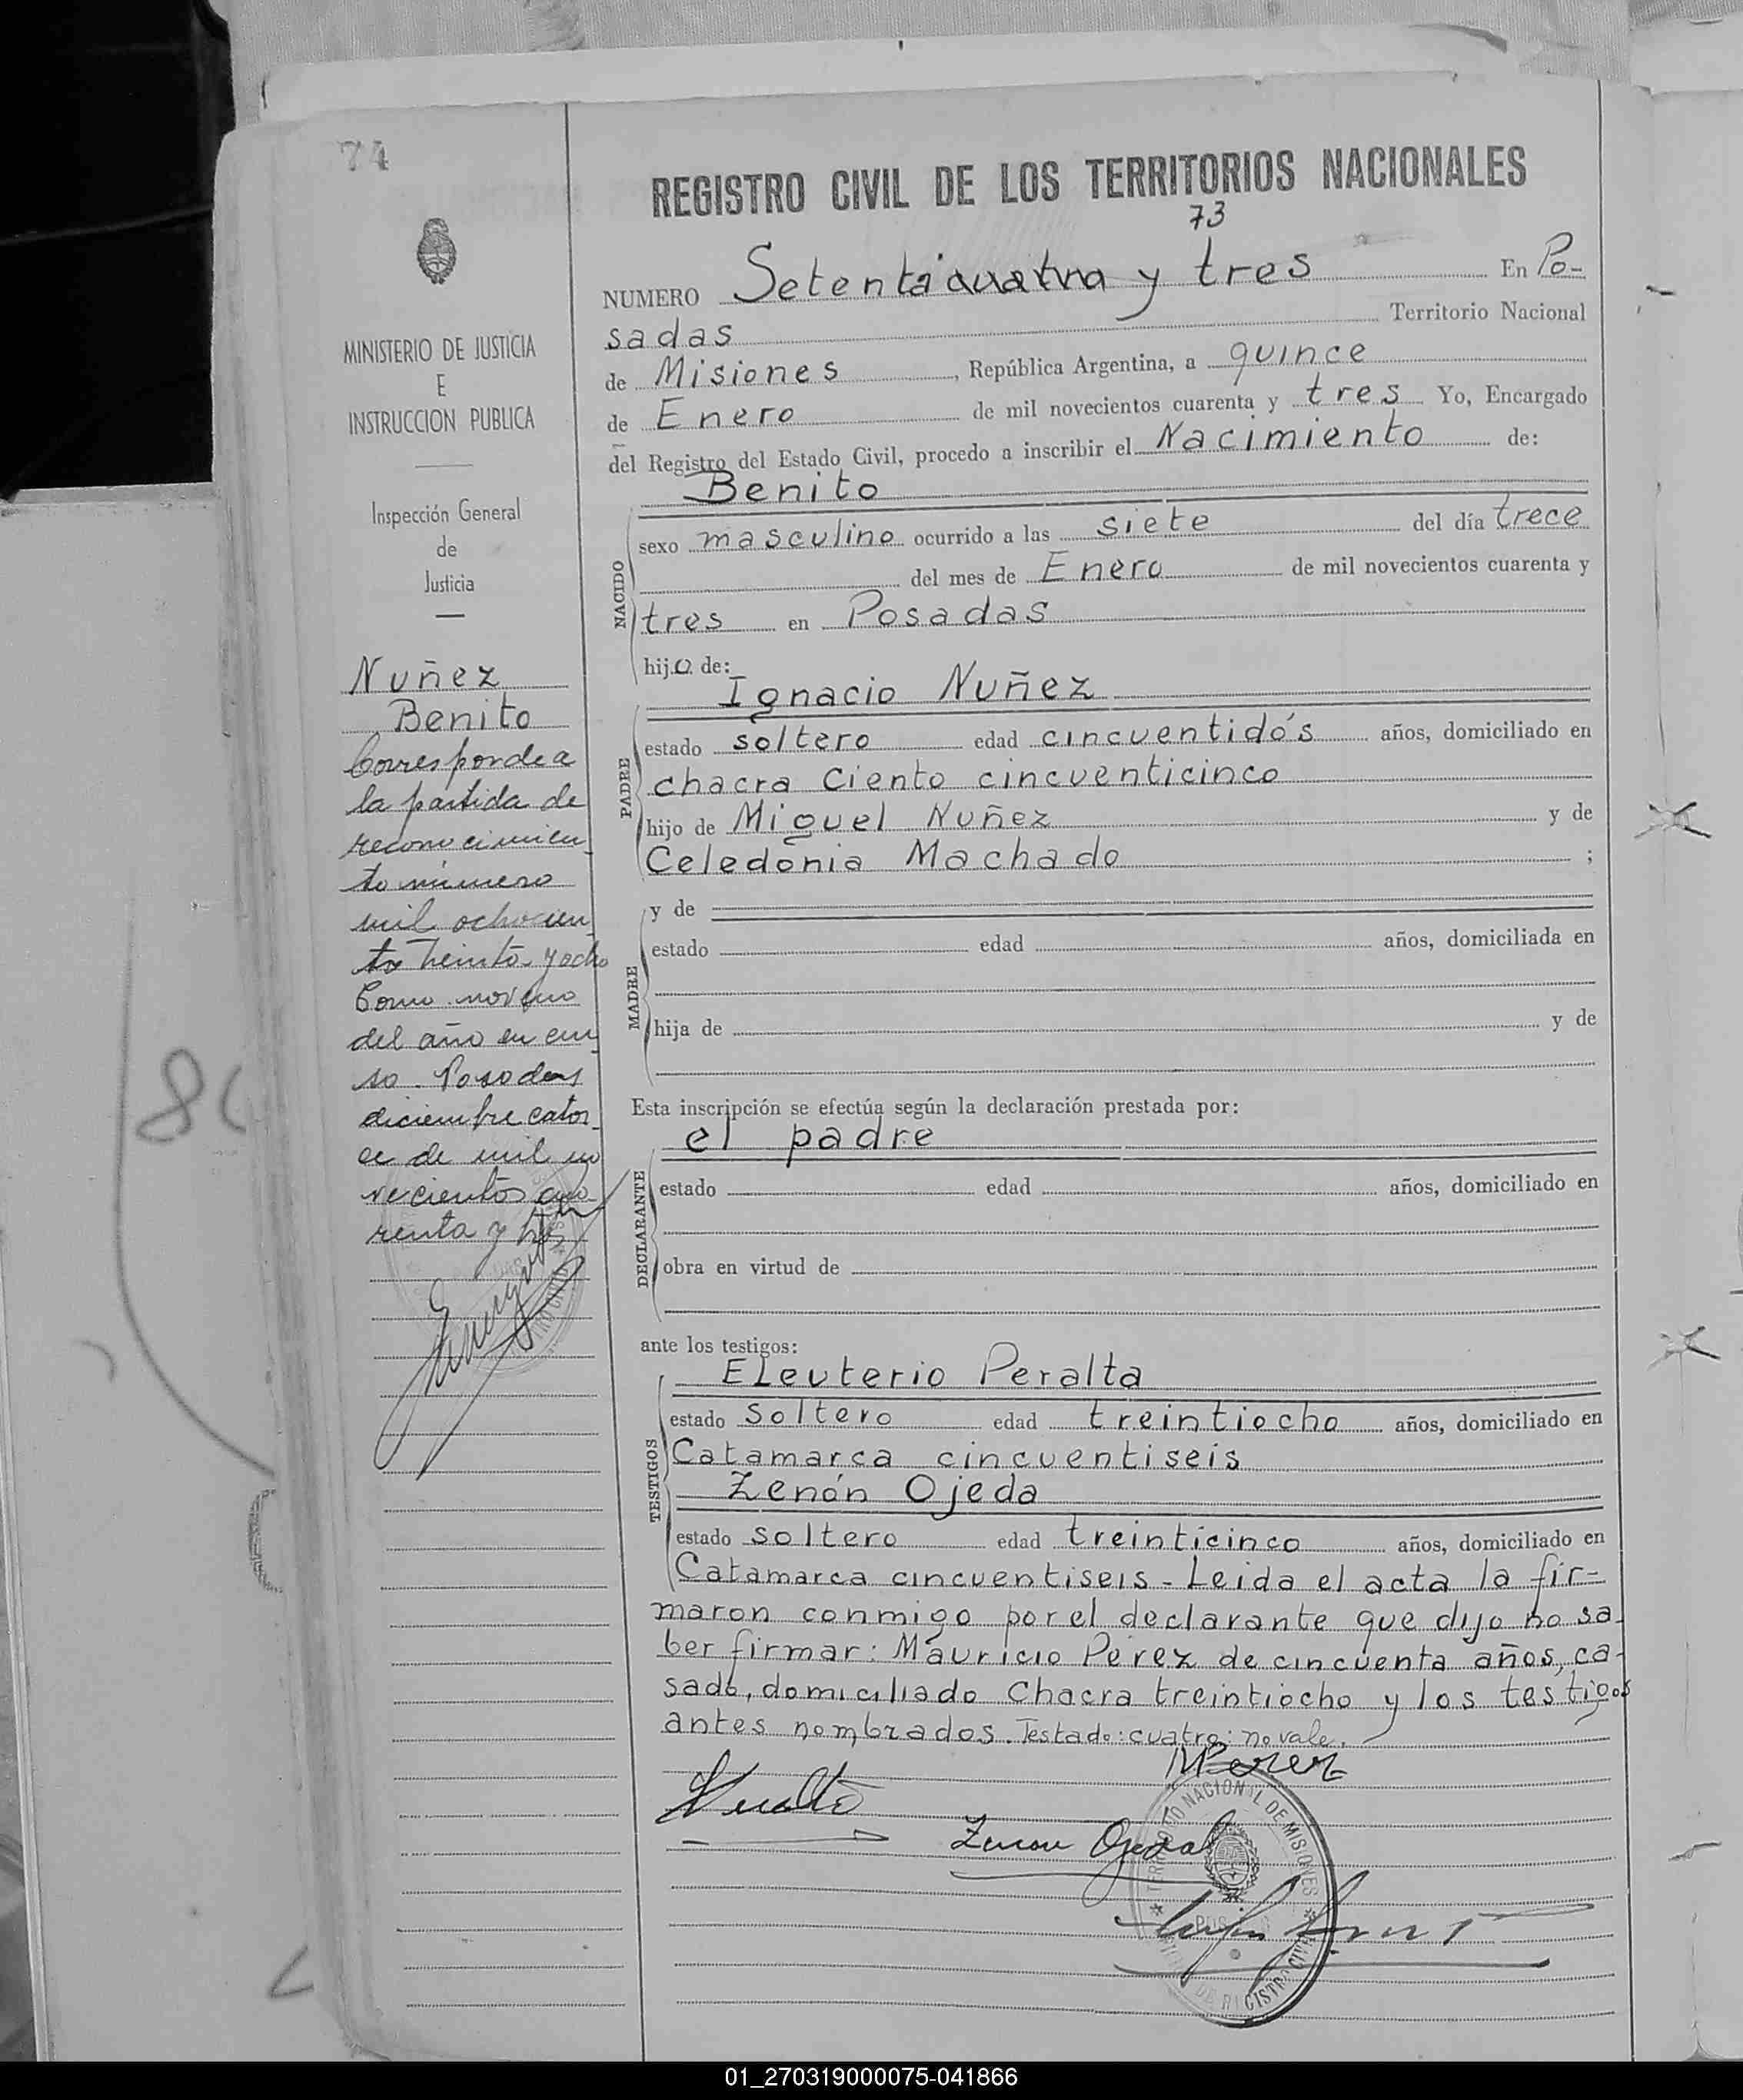 74
REGISTRO CIVIL DE LOS TERRITORIOS NACIONALES
73
NUMERO Setenta cuatro y tres En Po-
sadas Territorio Nacional
de Misiones, República Argentina, a quince
de Enero de mil novecientos cuarenta y tres Yo, Encargado
del Registro del Estado Civil, procedo a inscribir el Nacimiento de:
Benito
NACIDO
sexo masculino ocurrido a las siete del día trece
del mes de Enero de mil novecientos cuarenta y
tres en Posadas
hijo de:
Ignacio Nuñez
PADRE
estado soltero edad cincuentidós años, domiciliado en
chacra Ciento cincuenticinco
hijo de Miguel Nuñez y de
Celedonia Machado ;
MADRE
y de
estado edad años, domiciliada en
hija de y de
Esta inscripción se efectúa según la declaración prestada por:
el padre
DECLARANTE
estado edad años, domiciliado en
obra en virtud de
ante los testigos:
TESTIGOS
Eleuterio Peralta
estado soltero edad treintiocho años, domiciliado en
Catamarca cincuentiseis
Zenón Ojeda
estado soltero edad treinticinco años, domiciliado en
Catamarca cincuentiseis - Leida el acta la fir-
maron conmigo por el declarante que dijo no sa-
ber firmar: Mauricio Pérez de cincuenta años, ca-
sado, domiciliado Chacra treintiocho y los testigos
antes nombrados. Testado: cuatro: no vale.
MPerez
Zenon Ojeda
TERRITORIO NACIONAL DE MISIONES
REGISTRO CIVIL
MINISTERIO DE JUSTICIA
E
INSTRUCCION PUBLICA
Inspección General
de
Justicia
Nuñez
Benito
Corresponde a
la partida de
reconocimien
to número
mil ochocien
to treinta y ocho
del año en cur
so. Posadas
diciembre cator
ce de mil no
vecientos cua
renta y tres
86
01_270319000075-041866